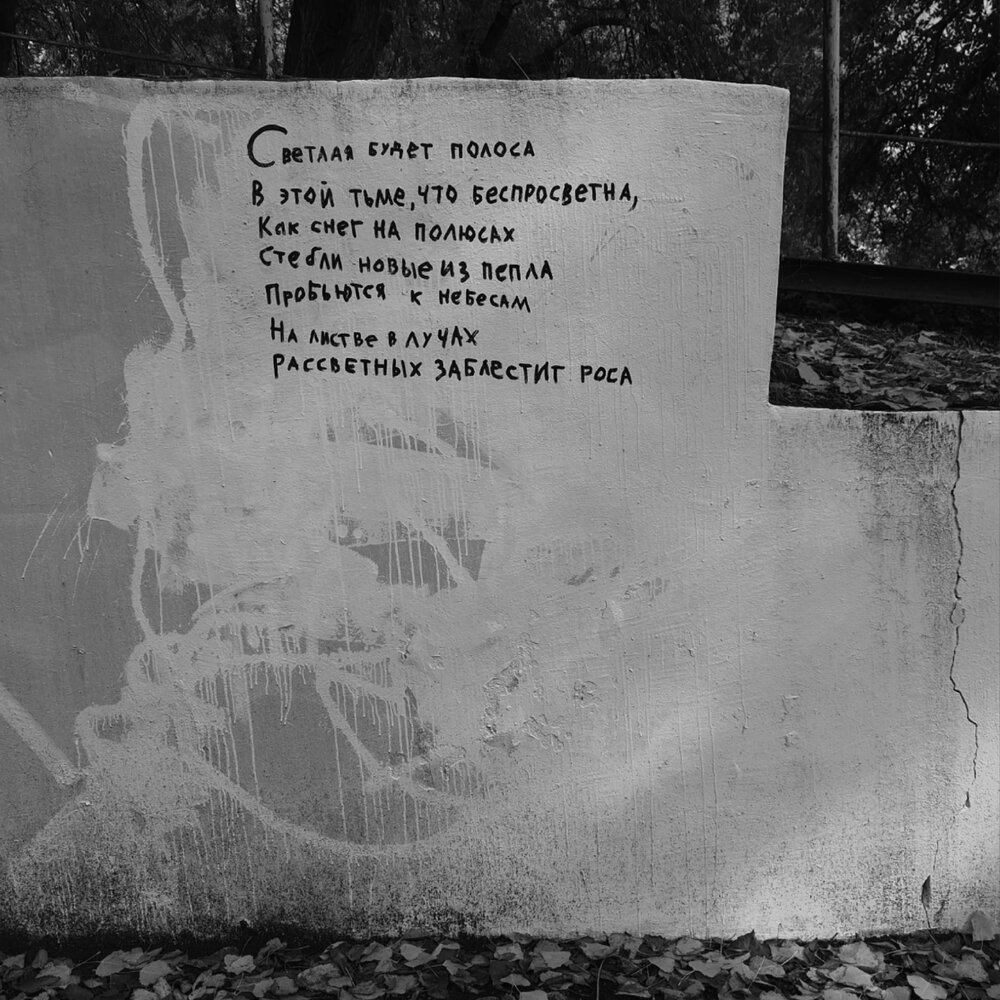 Светлая будет полоса
В этой тьме, что беспросветна,
Как снег на полюсах
Стебли новые из пепла
Пробьются к небесам
На листве в лучах
Рассветных заблестит роса